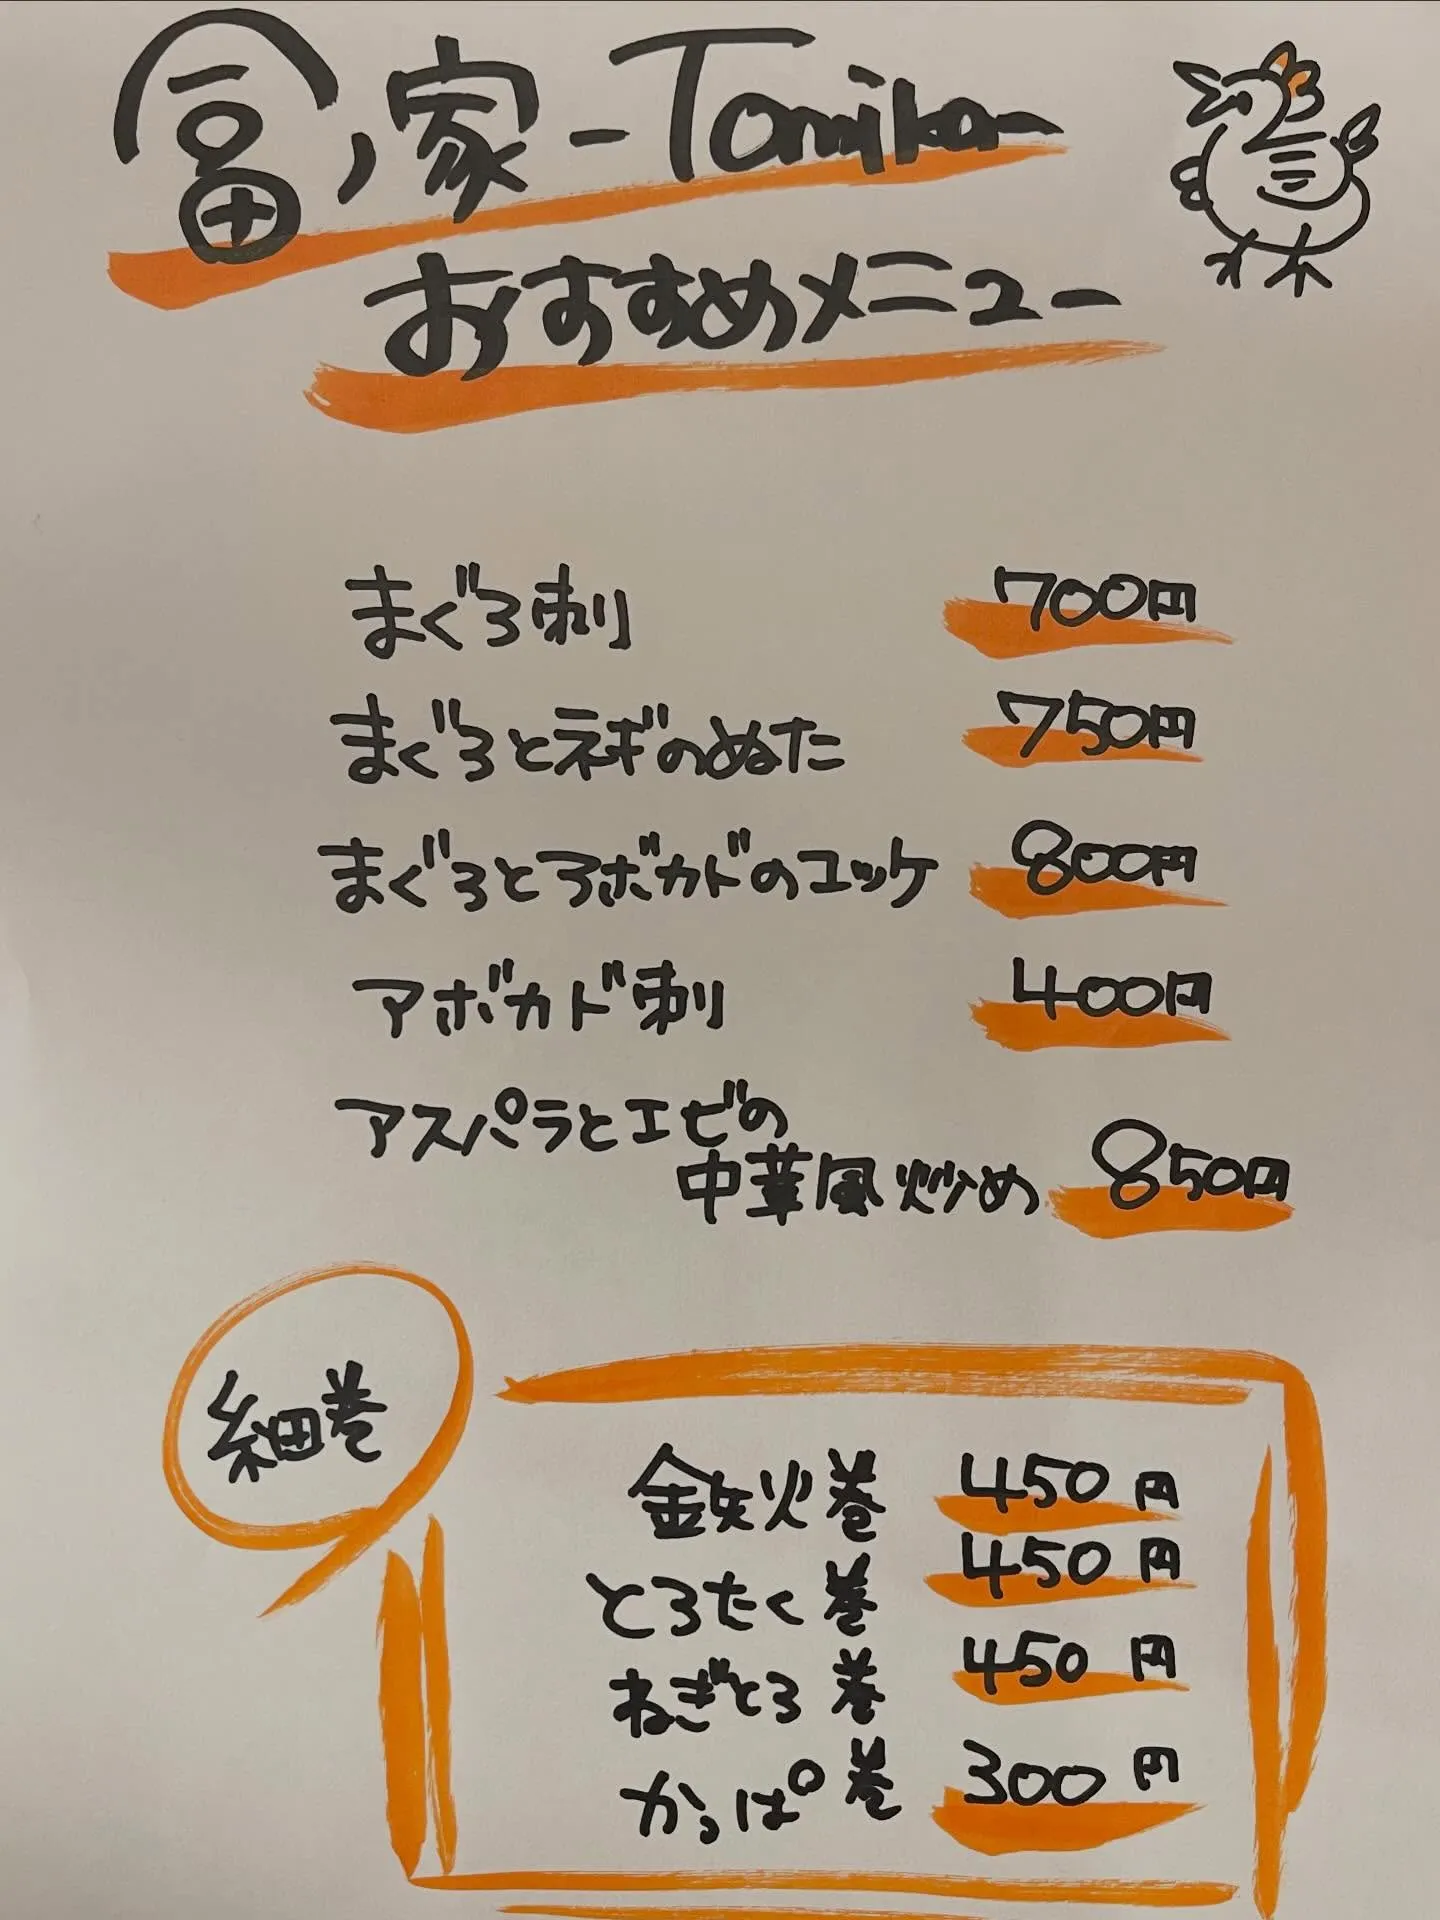 冨ノ家-Tomika-
おすすめメニュー
まぐろ刺 700円
まぐろとネギのぬた 750円
まぐろとアボカドのユッケ 800円
アボカド刺 400円
アスパラとエビの
中華風炒め 850円
細巻
鉄火巻 450円
とろたく巻 450円
ねぎとろ巻 450円
かっぱ巻 300円